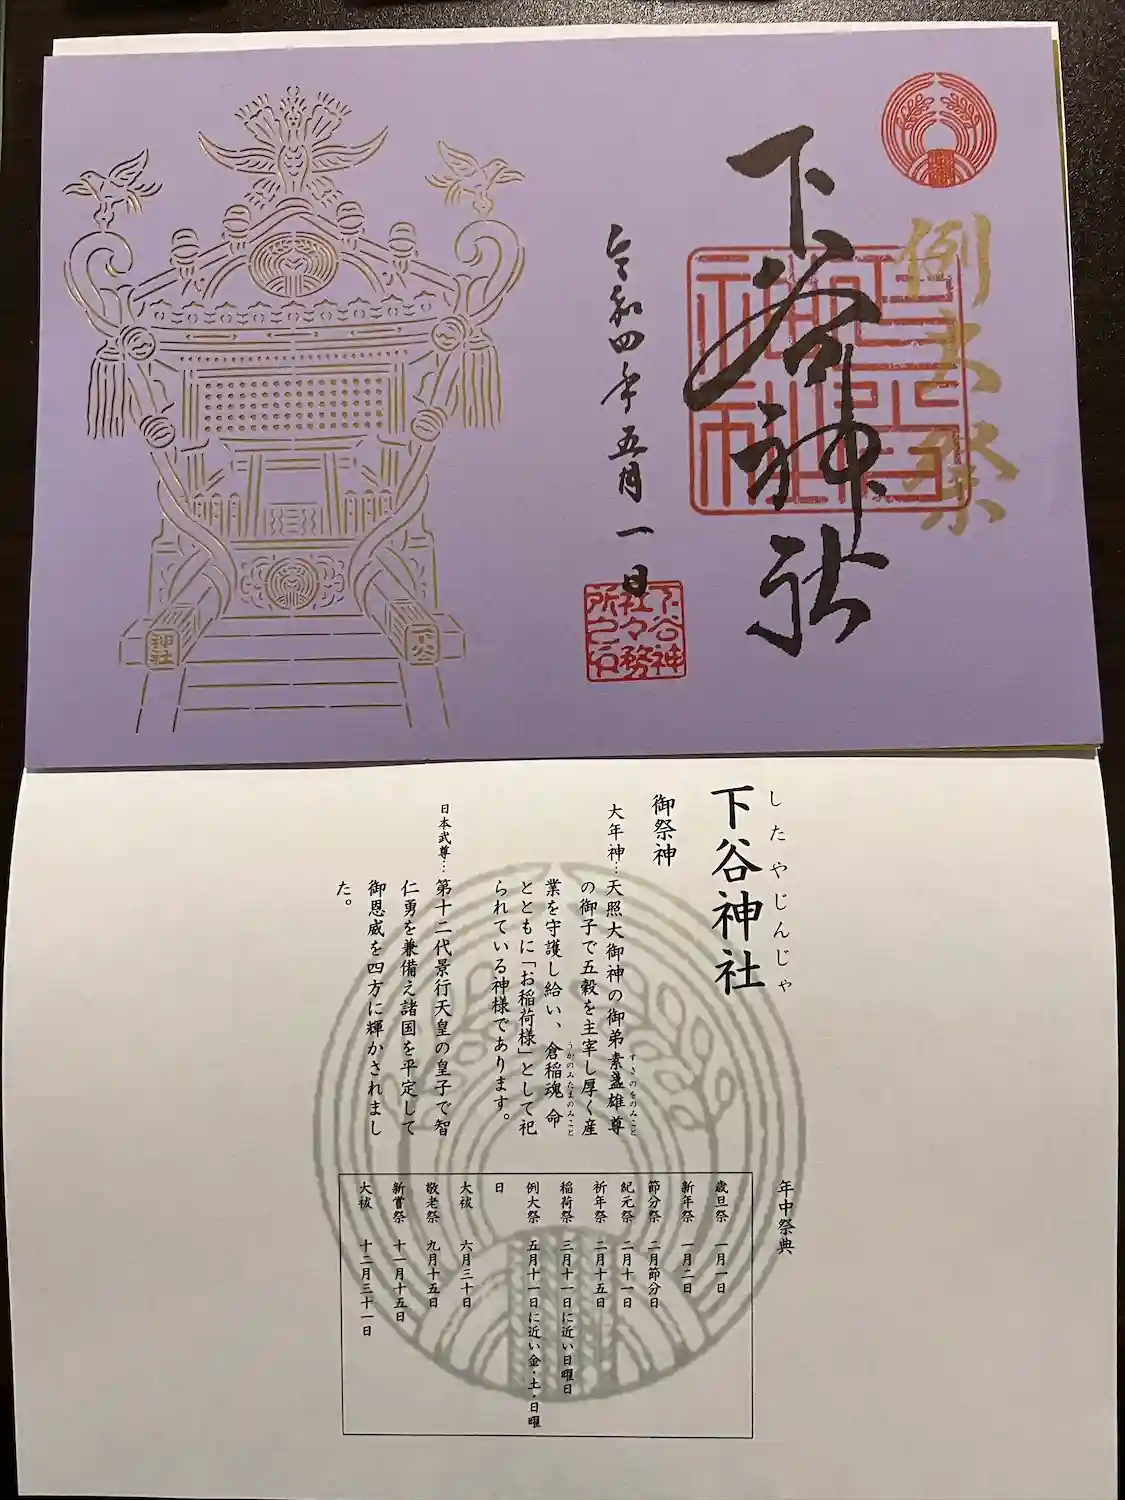 例大祭
下谷神社
令和四年五月一日
下谷神
社々務
所之印
下谷
神社
したやじんじゃ
下谷神社
御祭神
大年神…天照大御神の御弟素盞雄尊
すさのをのみこと
の御子で五穀を主宰し厚く産
業を守護し給い、倉稲魂命
うかのみたまのみこと
とともに「お稲荷様」として祀
られている神様であります。
日本武尊…第十二代景行天皇の皇子で智
仁勇を兼備え諸国を平定して
御恩威を四方に輝かされまし
た。
年中祭典
歳旦祭 一月一日
新年祭 一月二日
節分祭 二月節分日
紀元祭 二月十一日
祈年祭 二月十五日
稲荷祭 三月十一日に近い日曜日
例大祭 五月十一日に近い金・土・日曜
日
大祓 六月三十日
敬老祭 九月十五日
新嘗祭 十一月十五日
大祓 十二月三十一日